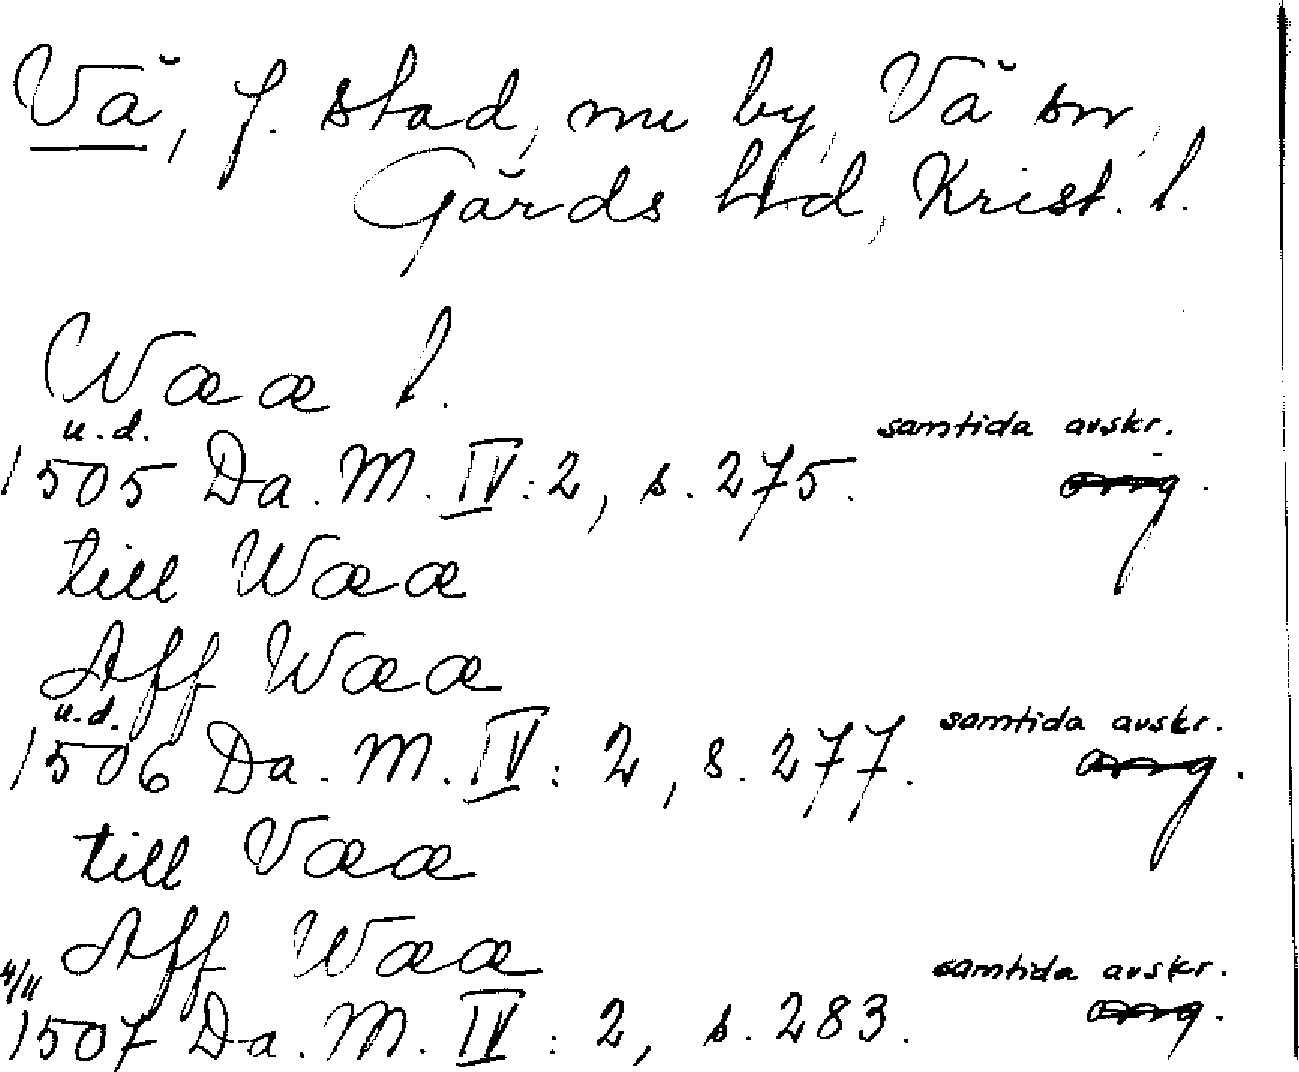 Vă, f. stad, nu by, Vă sn,
Gărds hd, Krist. l.
Waa l.
u.d. samtida avskr.
1505 Da. M. IV:2, s. 275. orig.
till Waa
Aff Waa
u.d. samtida avskr.
1506 Da. M. IV: 2, s. 277. orig.
till Vaa
Aff Waa
4/11 samtida avskr.
1507 Da. M. IV: 2, s. 283. orig.